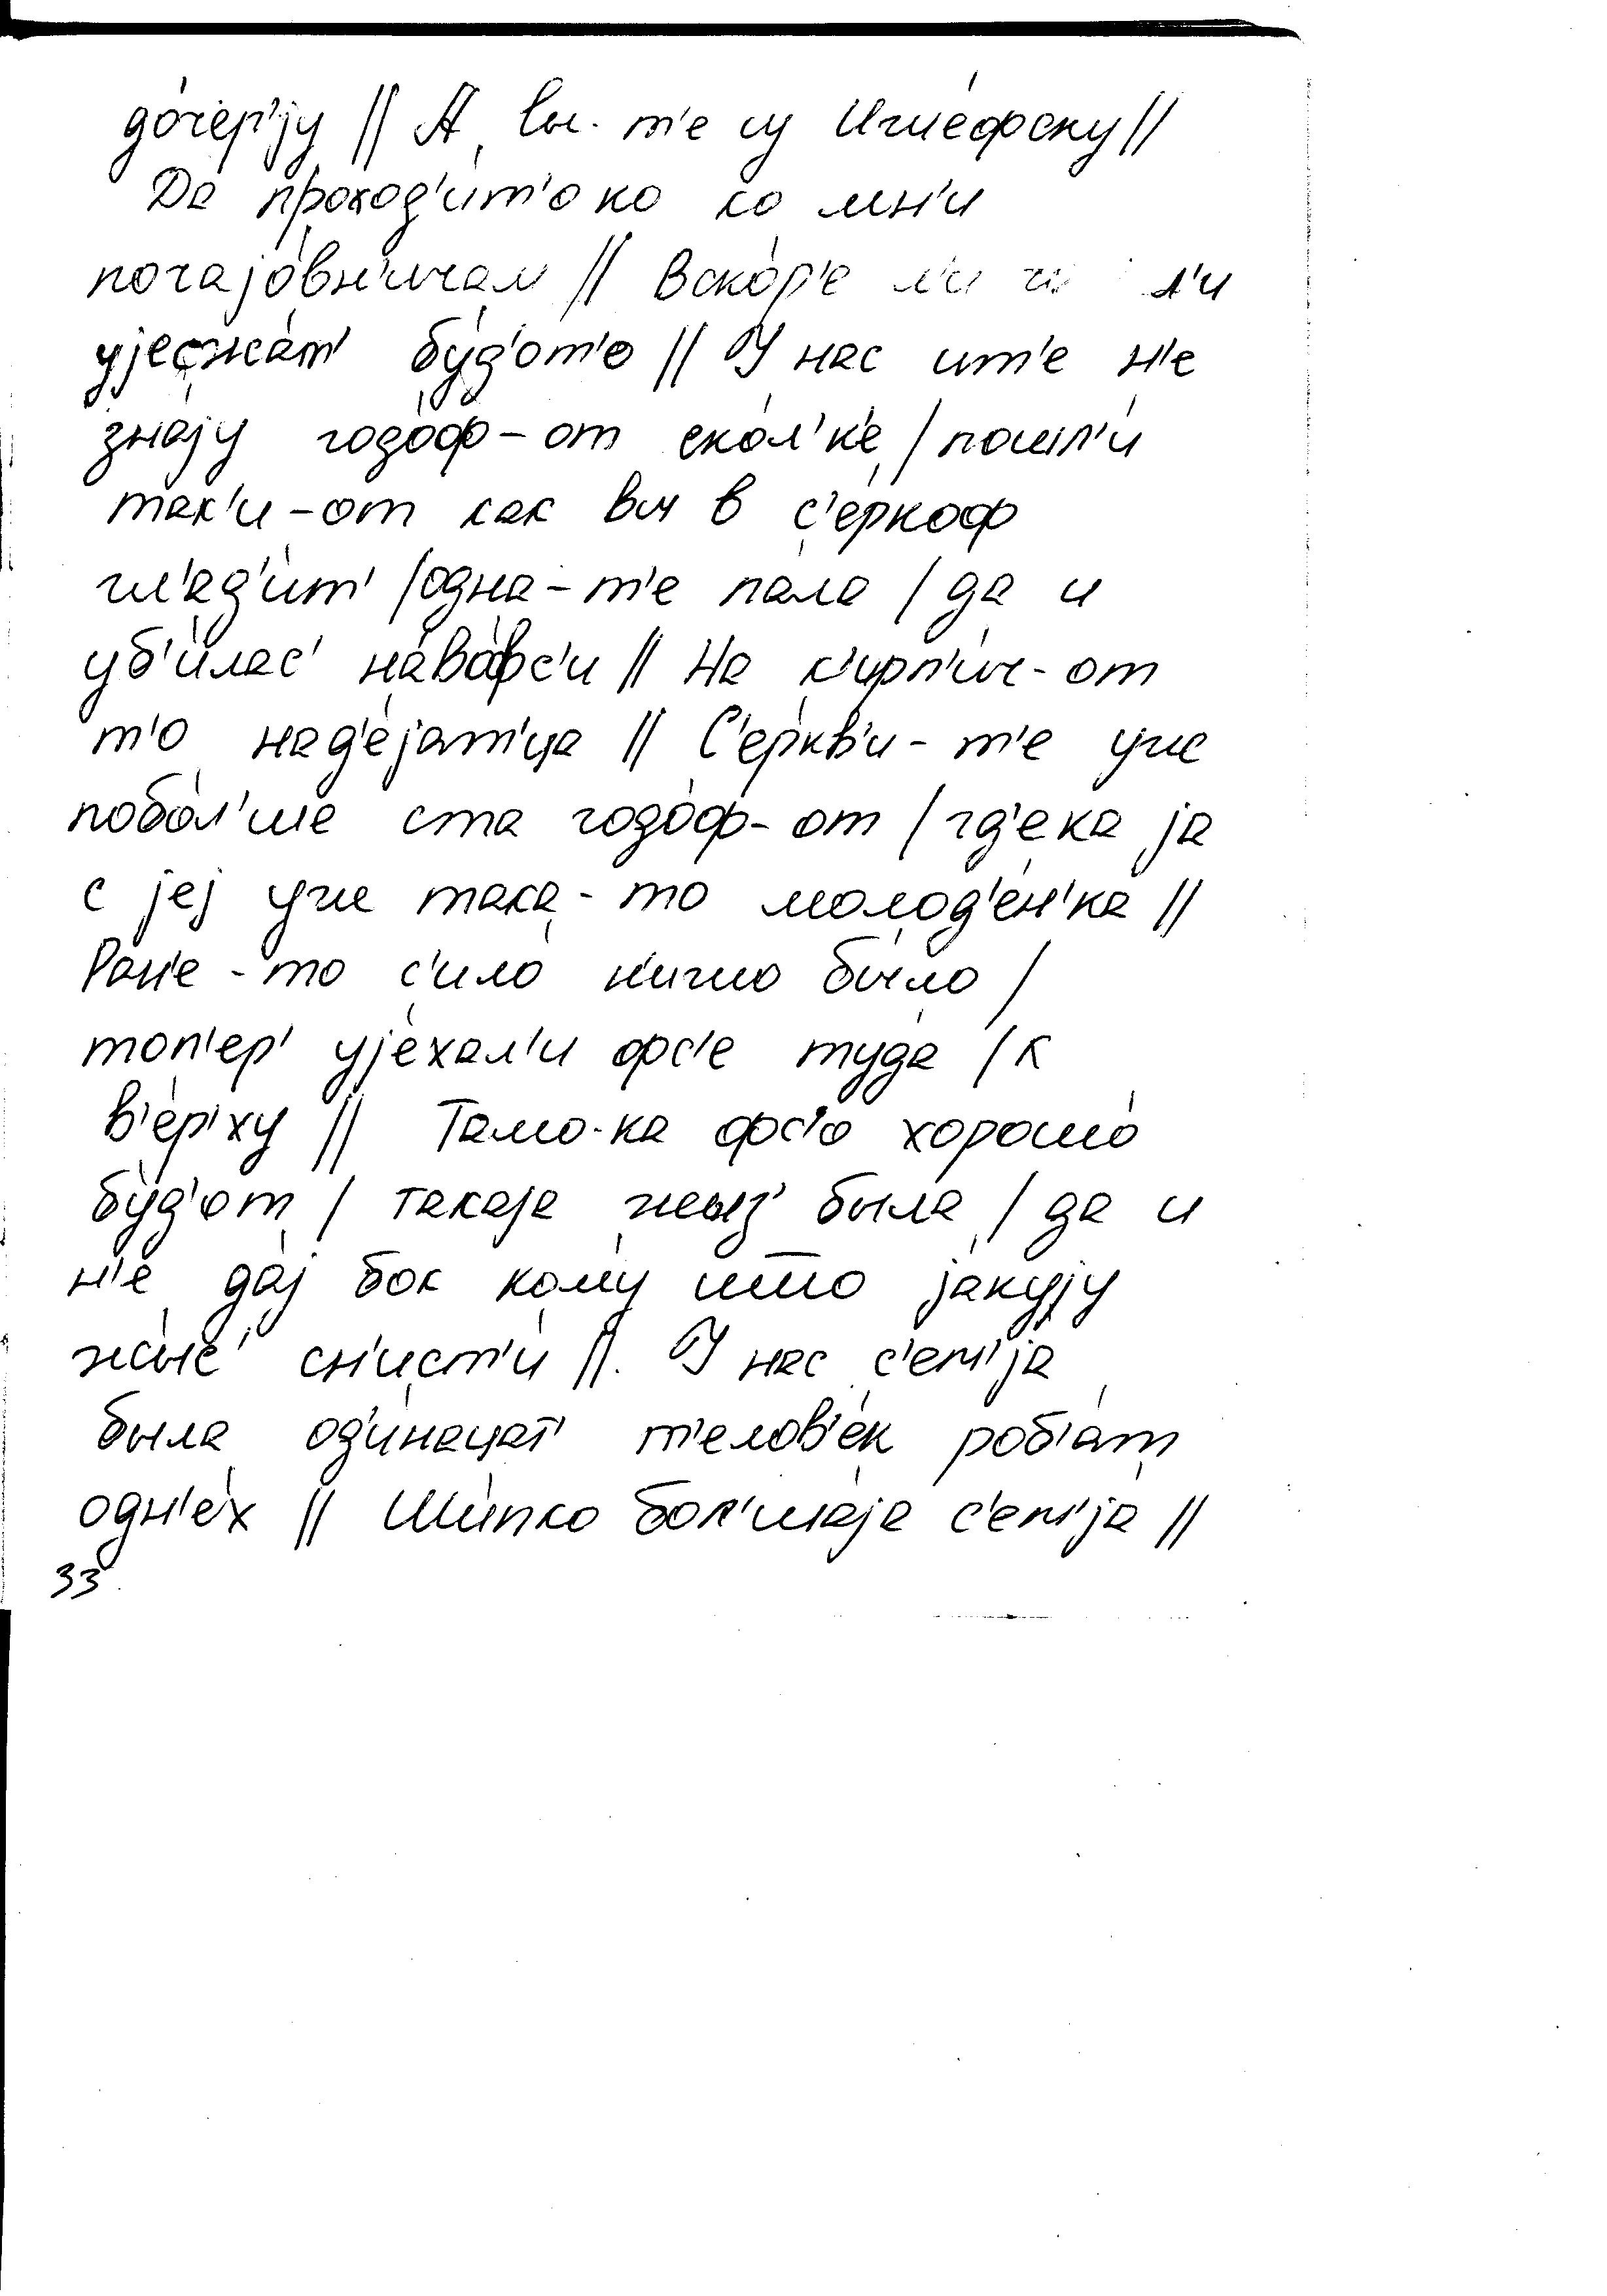 до́чер'jу || А вы-т'е су Ижие́фску ||
Да проход'и́т'о ко ко мн'и
почаjо́вн'ичам || Вско́р'е л'и л'и
уjесжа́т' бу́д'от'о || У нас ит'е н'е
зна́jу годо́ф-от ско́л'к'е / пошл'и́
так'и-от как вы в с'е́ркоф
гл'ад'и́т' / одна-т'е пала / да и
уб'и́лас' на́во́фс'и || На к'ирп'и́ч-от
т'о над'е́jат'ца || С'е́ркв'и-т'е уже
побо́л'ше ста годо́ф-от / гд'е ка jа
с jеj уже така-то молод'е́н'ка ||
Ран'е-то с'ило́ н'ижно бы́ло /
топ'ер' уjе́хал'и фс'е туда / к
в'е́р'ху || Тамо-ка фс'о хорошо́
бу́д'от / такаjа жыз' была / да и
н'е да́j бок кому́ што jакуjу
жы́с' сн'ист'и́ ||. У нас с'ем'jа́
была од'и́нацат' т'елов'е́к роб'а́т
одн'е́х || Ши́пко бол'ша́jа с'ем'jа́ ||
33